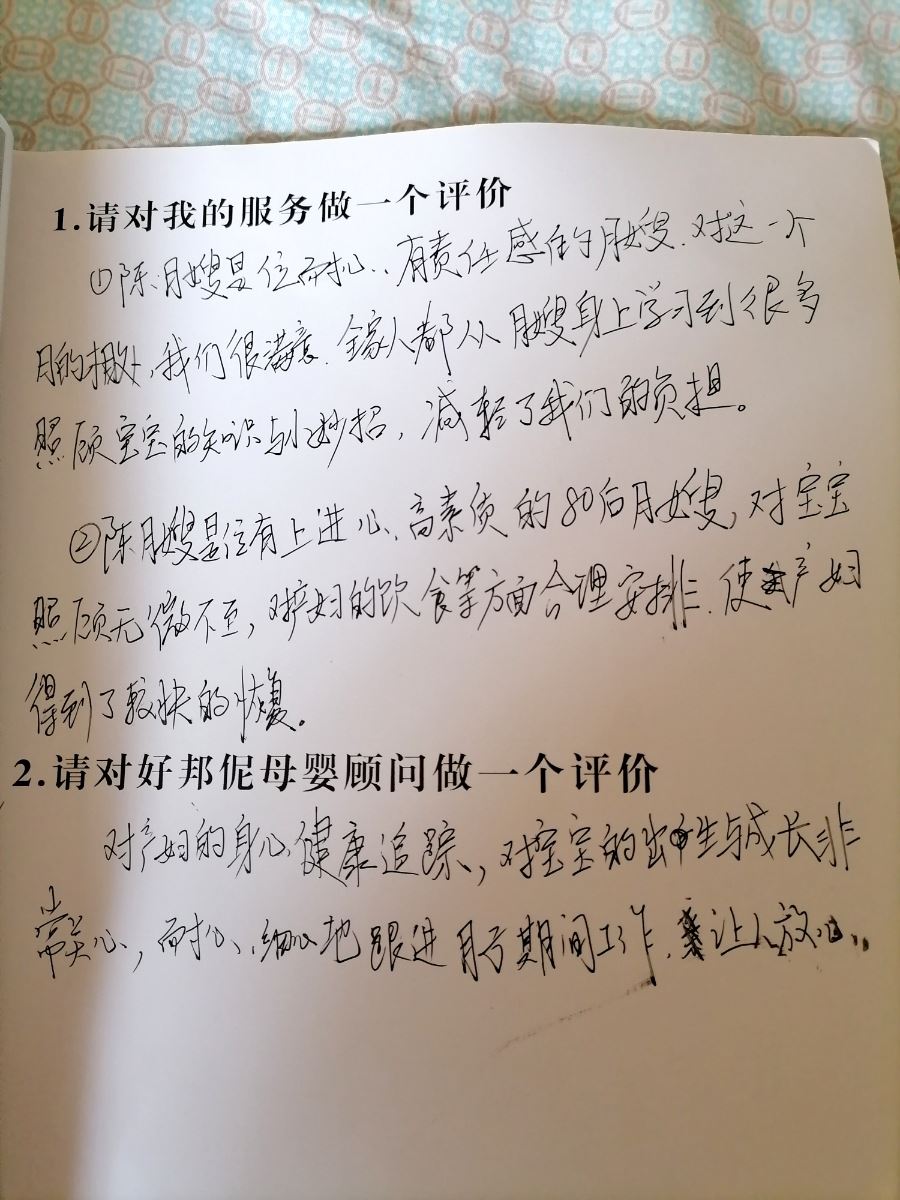 1.请对我的服务做一个评价
①陈月嫂是位耐心、有责任感的月嫂.对这一个
月的相处,我们很满意.全家人都从月嫂身上学习到很多
照顾宝宝的知识与小妙招,减轻了我们的负担。
②陈月嫂是位有上进心、高素质的80后月嫂,对宝宝
照顾无微不至,对产妇的饮食等方面合理安排.使产妇
得到了较快的恢复。
2.请对好邦伲母婴顾问做一个评价
对产妇的身心健康追踪,对宝宝的出生与成长非
常关心,耐心、细心地跟进月子期间工作.让人放心..